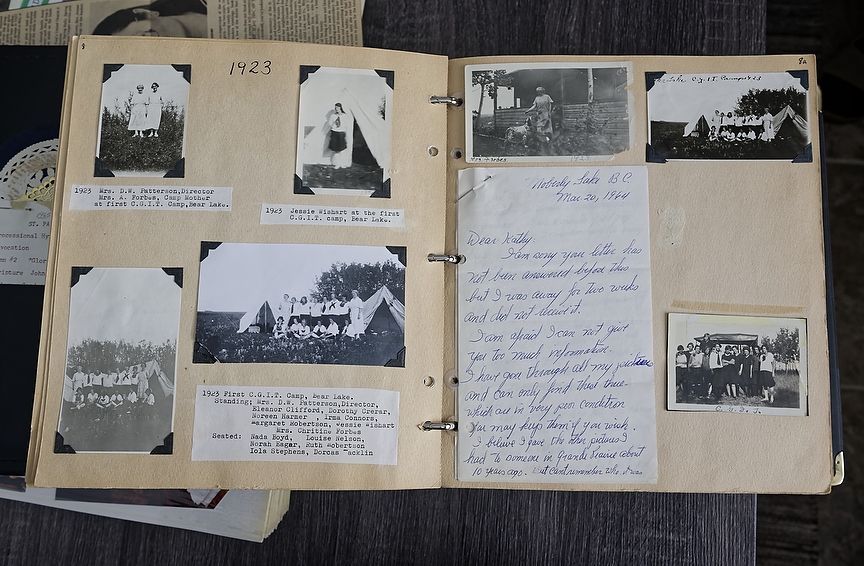 8
1923
1923 Mrs. D.W. Patterson,Director
Mrs. A. Forbes, Camp Mother
at first C.G.I.T. Camp,Bear Lake.
1923 Jessie Wishart at the first
C.G.I.T. camp, Bear Lake.
1923 First C.G.I.T. Camp, Bear Lake.
Standing; Mrs. D.W. Patterson,Director,
Eleanor Clifford, Dorothy Crerar,
Noreen Harmer , Irma Connors,
Margaret Robertson, Jessie Wishart
Mrs. Chritine Forbes
Seated: Nada Boyd, Louise Nelson,
Norah Eagar, Ruth Robertson
Iola Stephens, Dorcas
8a
Mrs. Forbes
Lake C.G.I.T. Camp 1923
Lake B.C
Mar. 20, 1964
Dear Kathy:
I am sorry your letter has
not been answered before this
but I was away for two weeks
and did not receive it.
I am afraid I can not give
you too much information.
I have gone through all my pictures
and can only find these three
which are in very poor condition
You may keep them if you wish.
I believe I gave the other pictures I
had to someone in Grande Prairie about
10 years ago. But cant remember who. It was
C.G.I.T.
ST. PA
ocessional Hy
vocation
mn #2 "Glor
ripture John